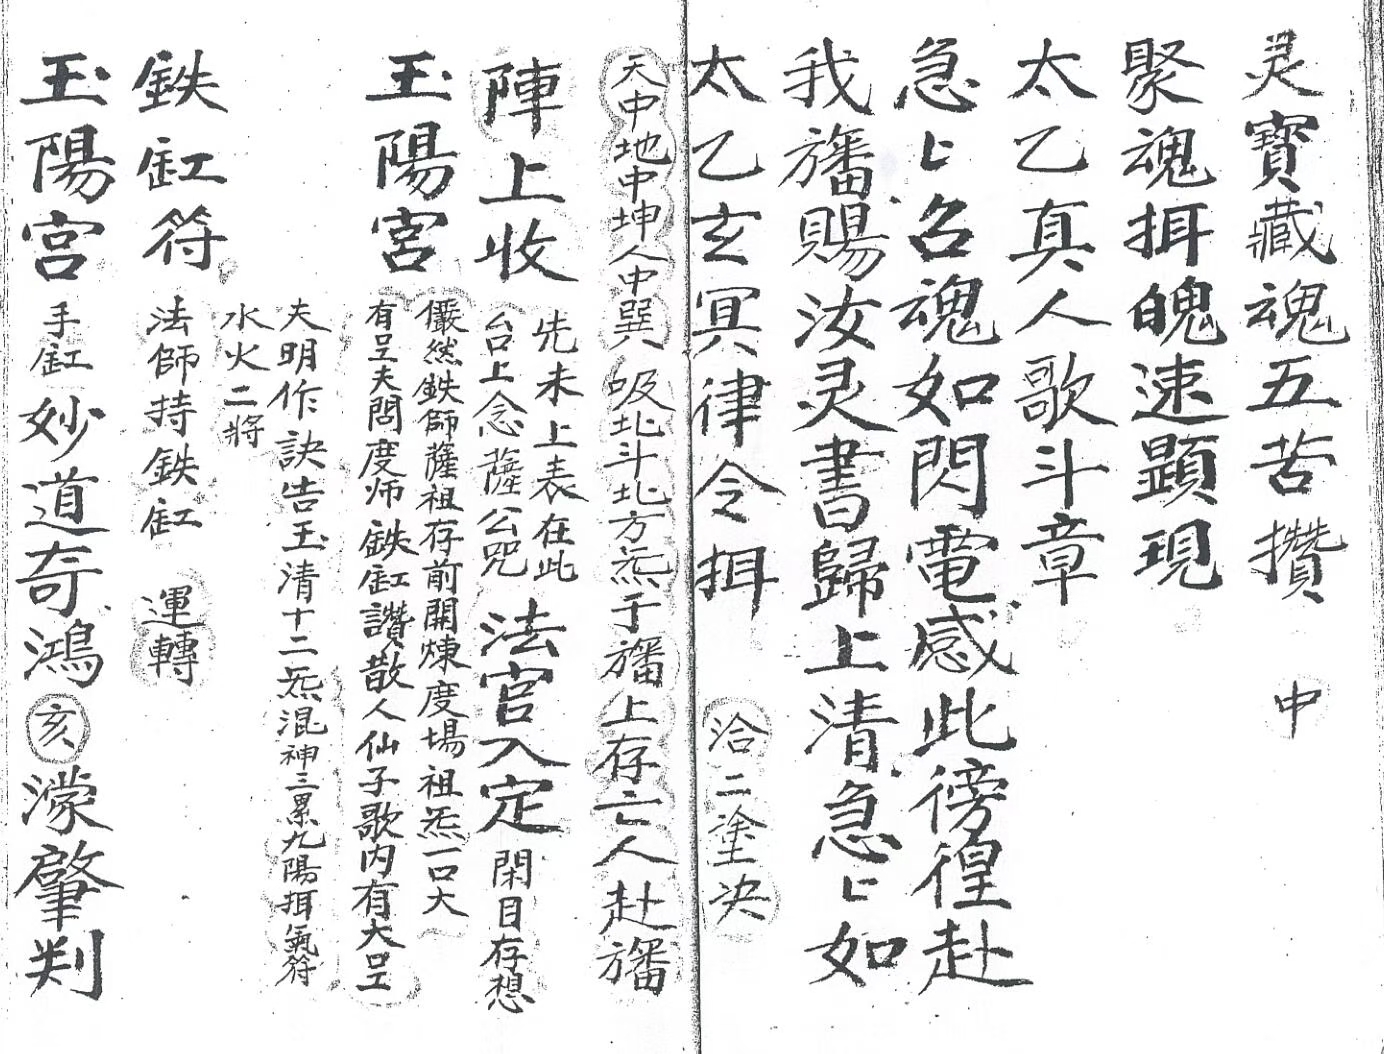 灵寳藏魂五苦攢 中
聚魂挕魄速顕現
太乙真人歌斗章
急〻召魂如閃電感此徬徨赴
我旛賜汝灵書歸上清急〻如
太乙玄冥律令挕 洽二塗決
天中地中坤人中巽 吸北斗北方炁于旛上存亡人赴旛
陣上收 先未上表在此
台上念薩公咒 法官入定 閑目存想
王陽宮 儼然鉄師薩祖存前開煉度場祖炁一口大
有呈夫問度师鉄缸讚散人仙子歌内有大呈
夫明作訣告玉清十二炁混神三累九陽挕氣符
水火二將
鉄缸符 法師持鉄缸 運轉
玉陽宮 手缸 妙道奇鴻 亥 濛肇判